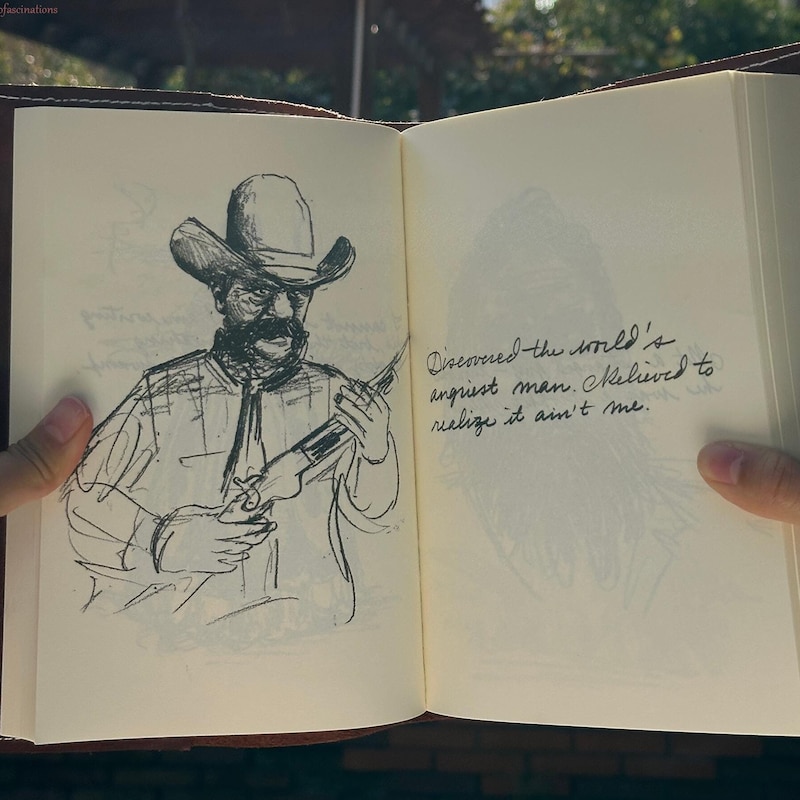 ofascinations
Discovered the world's
angriest man. Relieved to
realize it ain't me.